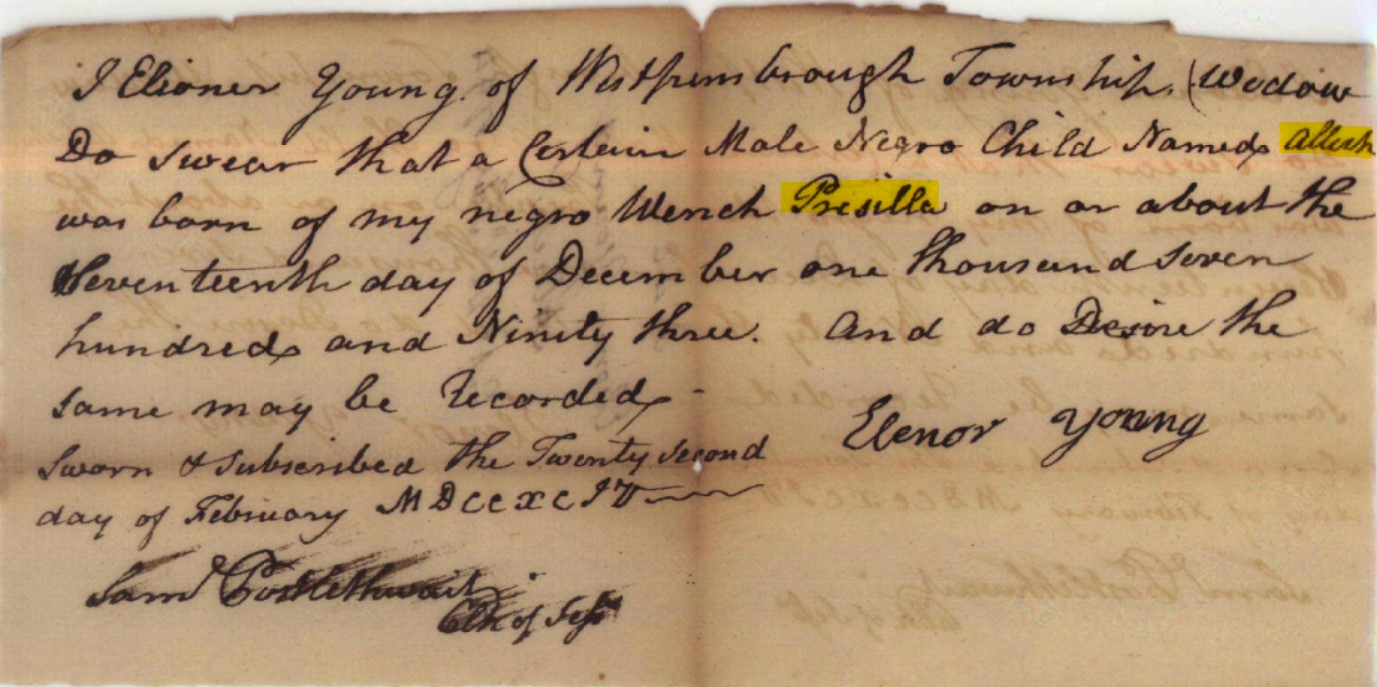 I Elioner Young of Westpensbrough Township, (Wedow
Do swear that a Certain Male Negro Child Named
was born of my negro Wench Presilla on or about the
Seventeenth day of December one thousand seven
hundred and Ninity three. And do Desire the
same may be Recorded -
Elenor young
Sworn & subscribed the Twenty second
day of February MDCCXCIV
Saml Postlethwait
Clk of Sess